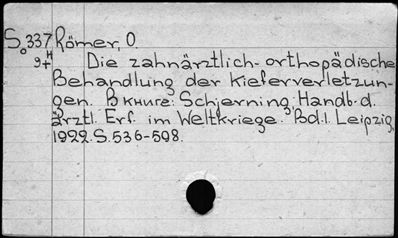 S₀337 Römer, O.
9+H Die zahnärztlich-orthopädische
Behandlung der Kieferverletzun-
gen. В книге: Schjerning, Handb. d.
ärztl. Erf. im Weltkriege. Bd. I. Leipzig,
1922. S. 536-598.